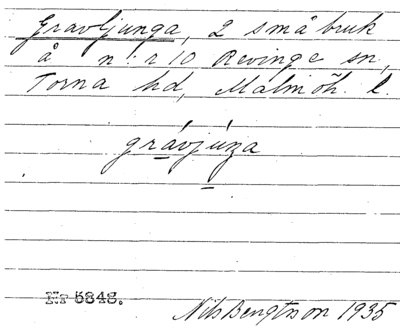 Gravljunga, 2 småbruk
å n:r 10 Revinge sn,
Torna hd, Malmöh. l.
grávjúŋa
Nr 5848.
Nils Bengtsson 1935